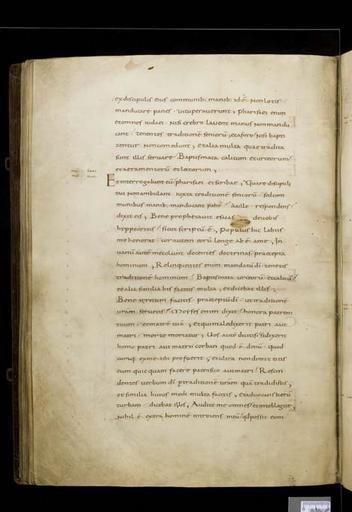 ex discipulis eius communib; manib; id ē non lotis
manducare panes vituperaverunt, pharisei enim
et omnes iudaei nisi crebro laverint manus non mandu
cant tenentes traditionē seniorū, et a foro nisi bapti
zentur non comedunt, et alia multa quae tradita
sunt illis servare Baptismata calicum et urceorum
et aeramentorum et lectorum,
Et interrogabant eū pharisei et scribae, Quare discipuli
tui non ambulant iuxta traditionē seniorū sed com
munibus manib; manducant panē At ille respondens
dixit eis, Bene prophetavit esaias de vobis
hypocritis sicut scriptū ē, Populus hic labiis
me honorat cor autem eorū longe ab ē a me, In
vanū autē me colunt docentes doctrinas praecepta
hominum, Relinquentes enim mandatū dī tenetis
traditionē hominum Baptismata urceorū et calicū
et alia similia his facitis multa, et dicebat illis,
Bene irritum facitis praeceptū dī ut traditionē
vestram servetis Moyses enim dixit honora patrem
tuum et matrē tuā, et qui maledixerit patri aut
matri morte moriatur, Vos autē dicitis si dixerit
homo patri aut matri corban quod ē donū quod
cumq; ex me tibi profuerit, et ultra non dimittitis
eum quicquam facere patri suo aut matri Rescin
dentes verbum dī p traditionē vestrā quā tradidistis,
et similia huius modi multa facitis, et advocans iterū
turbam dicebat illis, Audite me omnes et intellegite
nihil ē extra hominē introiens in eū quod possit eum